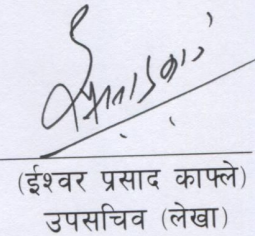 (ईश्वर प्रसाद काफ्ले)
उपसचिव (लेखा)